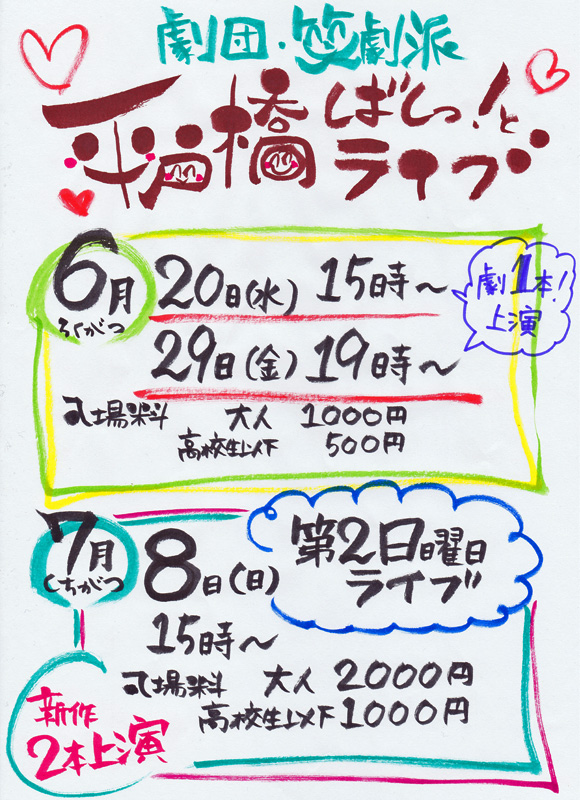 劇団・笑劇派
平戸橋ばしっ!と
ライブ
6月
ろくがつ
20日(水) 15時~
29日(金) 19時~
劇1本!
上演
入場料 大人 1000円
高校生以下 500円
7月
しちがつ
8日(日)
第2日曜日
ライブ
15時~
入場料 大人 2000円
高校生以下 1000円
新作
2本上演